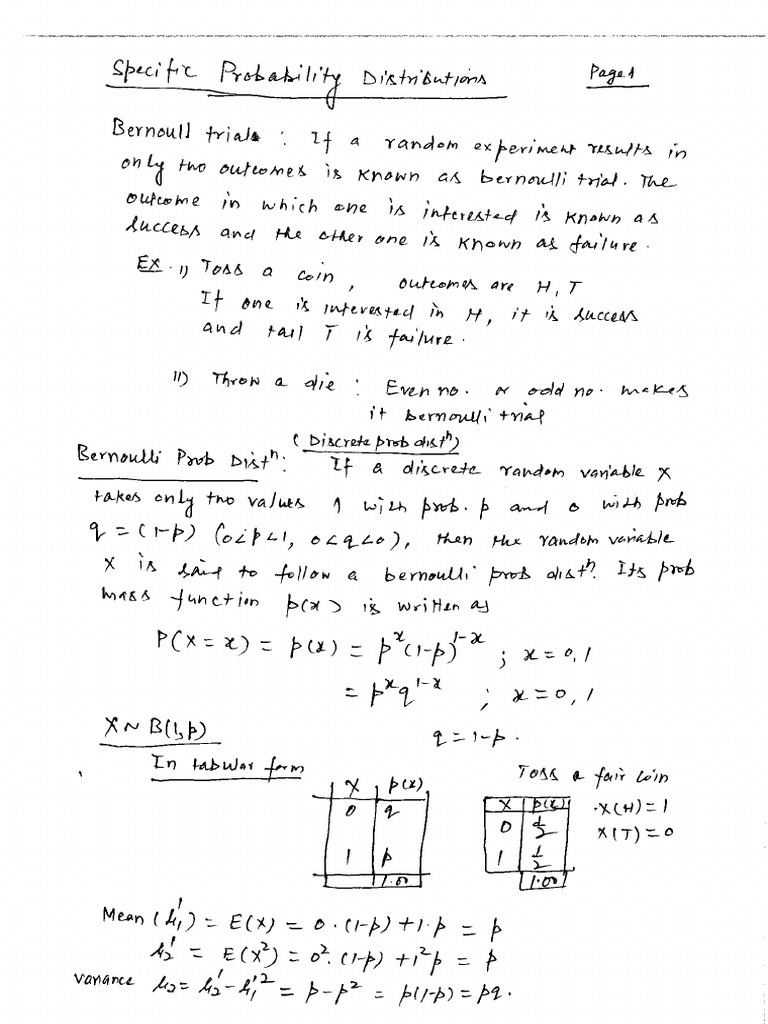 Specific Probability Distributions Page 1
Bernoull trials : If a random experiment results in
only two outcomes is known as bernoulli trial. The
outcome in which one is interested is known as
success and the other one is known as failure.
Ex. i) Toss a coin, outcomes are H, T
If one is interested in H, it is success
and tail T is failure.
ii) Throw a die : Even no. or odd no. makes
it bernoulli trial
(Discrete prob distⁿ)
Bernoulli Prob Distⁿ: If a discrete random variable X
takes only two values 1 with prob. p and 0 with prob
q = (1-p) (0<p<1, 0<q<0), then the random variable
X is said to follow a bernoulli prob distⁿ. Its prob
mass function p(x) is written as
P(X = x) = p(x) = p^x (1-p)^{1-x} ; x = 0, 1
= p^x q^{1-x} ; x = 0, 1
X ~ B(1, p) q = 1-p.
In tabular form Toss a fair coin
X p(x) X p(x) X(H) = 1
0 q 0 1/2 X(T) = 0
1 p 1 1/2
1.00 1.00
Mean (μ₁') = E(X) = 0·(1-p) + 1·p = p
μ₂' = E(X²) = 0²·(1-p) + 1²p = p
variance μ₂ = μ₂' - μ₁'² = p - p² = p(1-p) = pq.